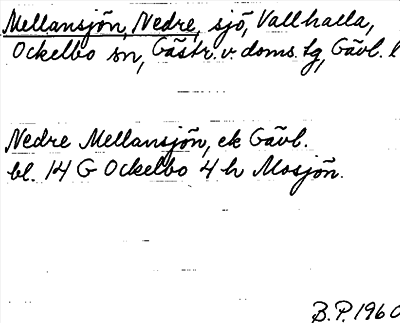 Mellansjön, Nedre, sjö, Vallhalla,
Ockelbo sn, Gästr. v. doms. tg, Gävl. l
Nedre Mellansjön, ek Gävl.
bl. 14 G Ockelbo 4 h Mosjön.
B.P. 1960